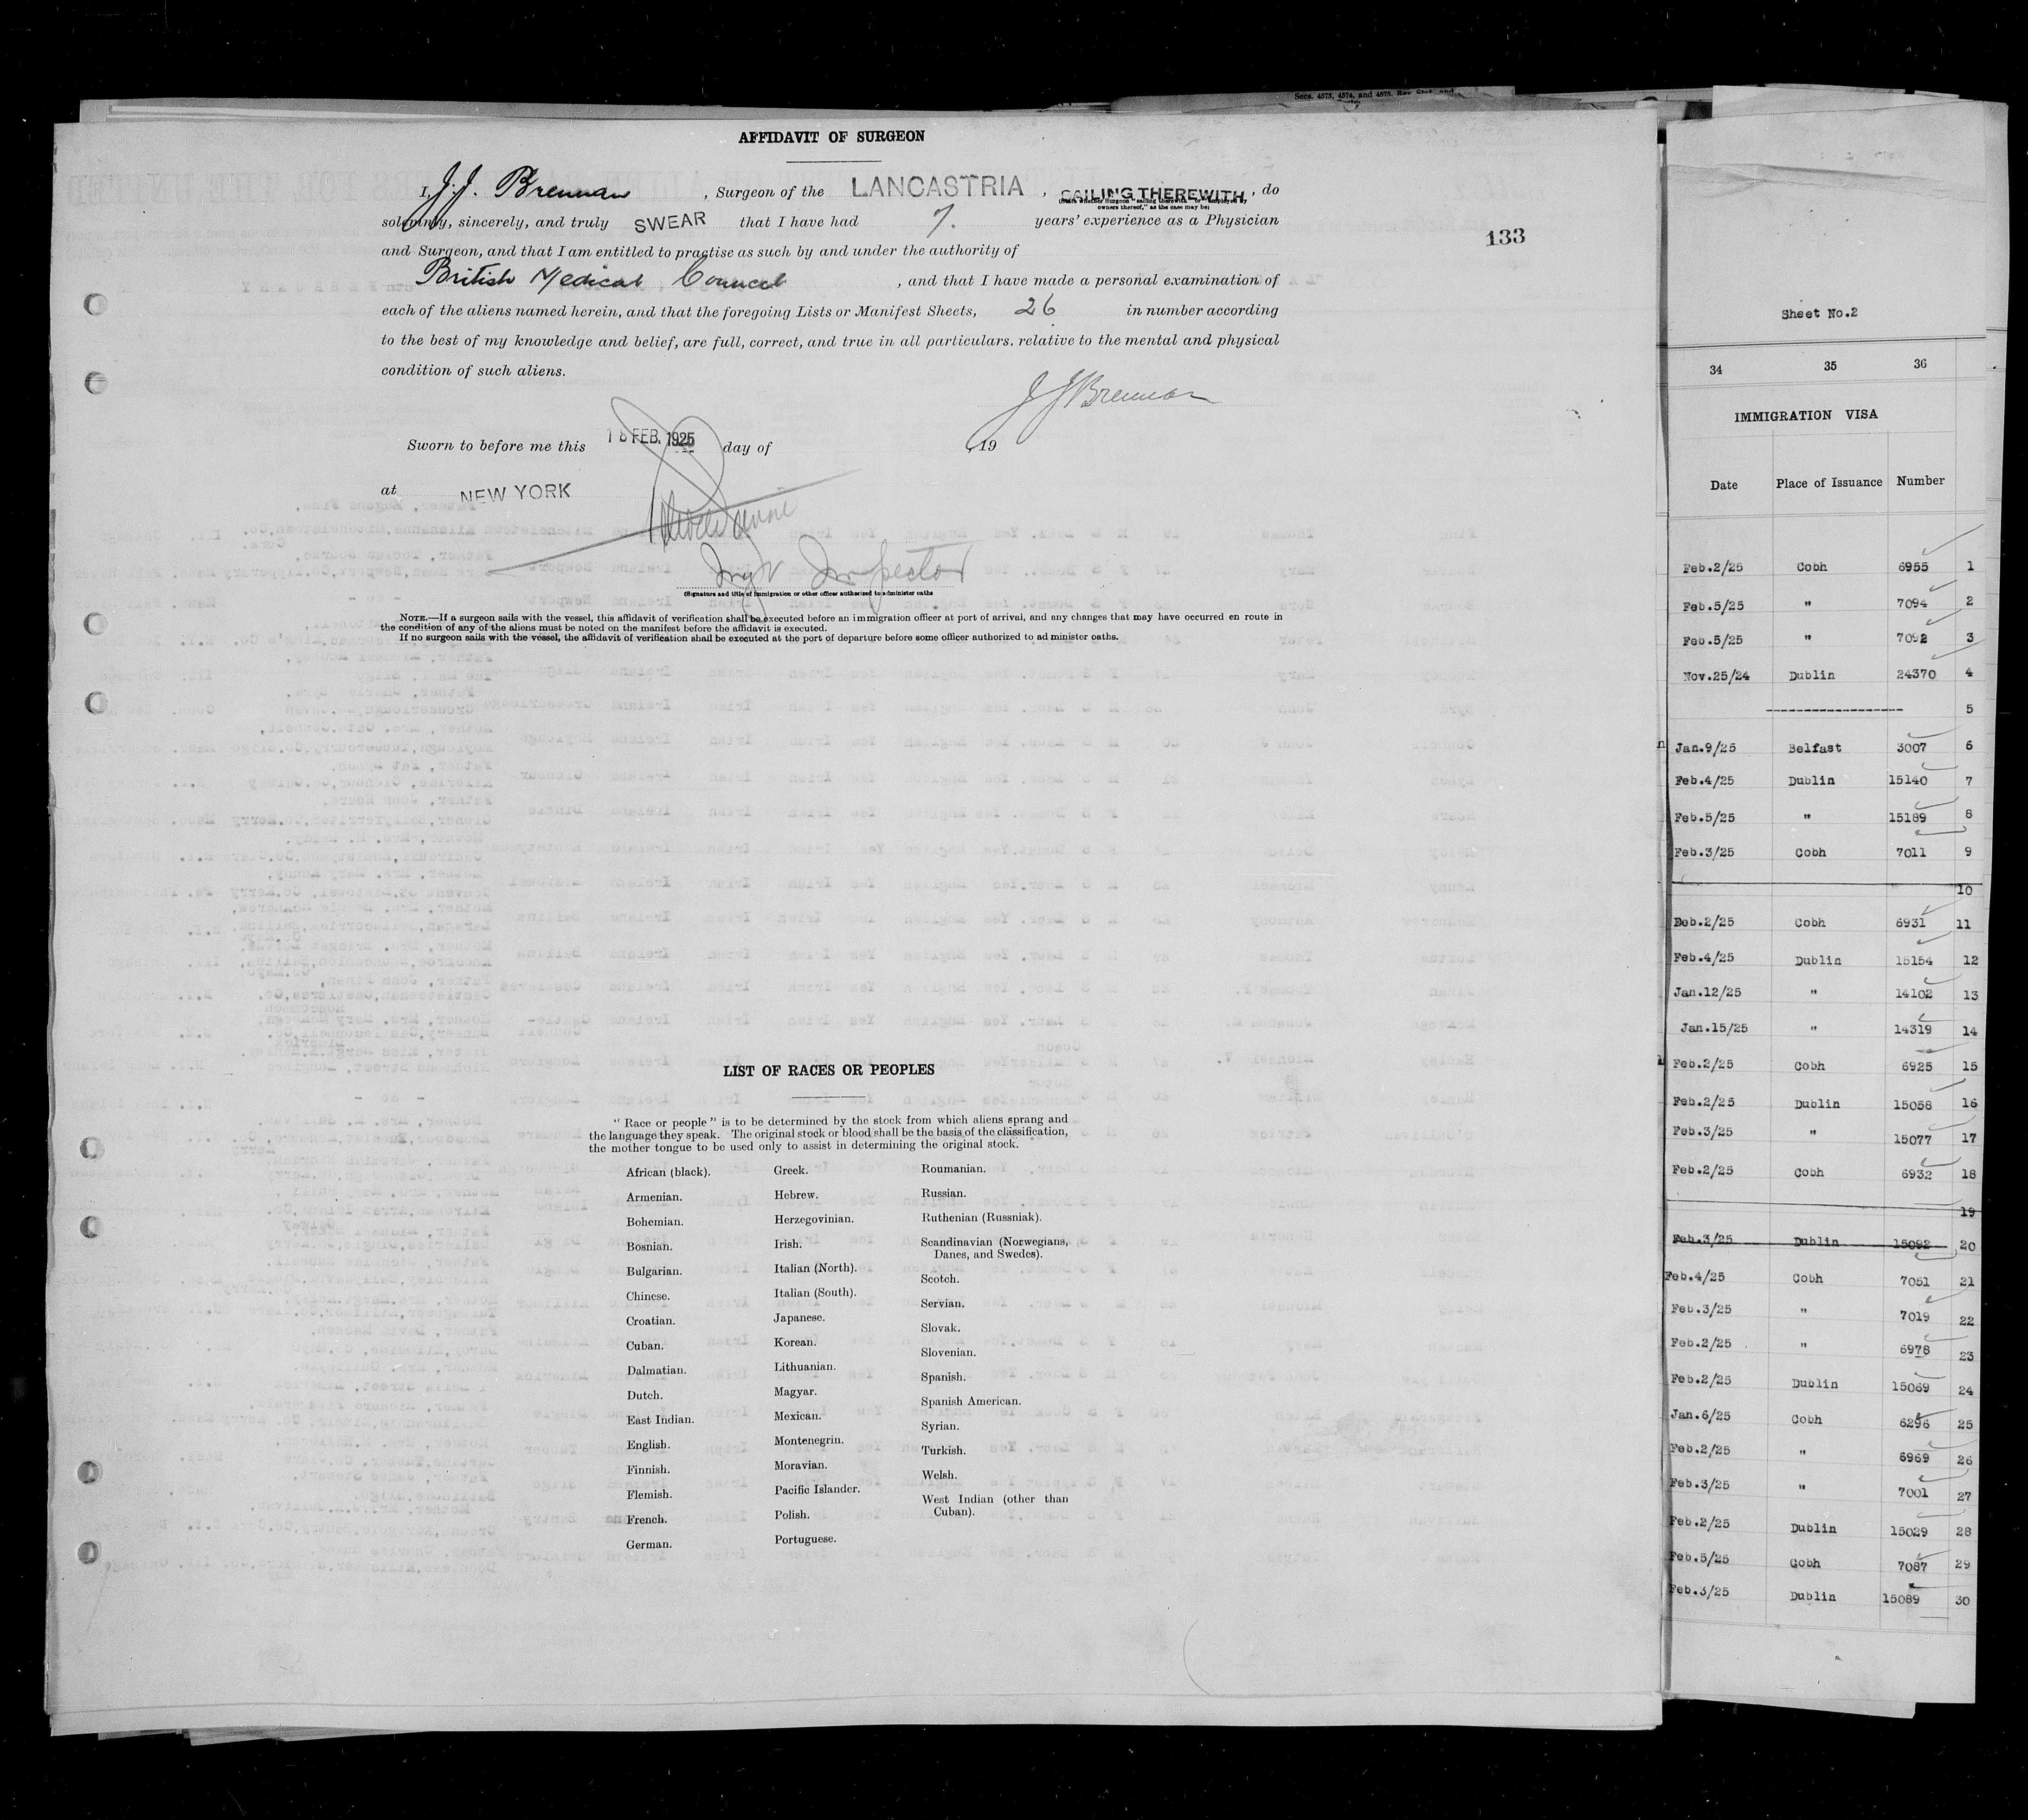 Secs. 4573, 4574, and 4575, Rev. Stat. and
AFFIDAVIT OF SURGEON
I, J. J. Brennan, Surgeon of the LANCASTRIA, SAILING THEREWITH, do
(State whether Surgeon "sailing therewith" or "employed by
owners thereof," as the case may be)
solemnly, sincerely, and truly SWEAR that I have had 7. years' experience as a Physician
and Surgeon, and that I am entitled to practise as such by and under the authority of
British Medical Council, and that I have made a personal examination of
each of the aliens named herein, and that the foregoing Lists or Manifest Sheets, 26 in number according
to the best of my knowledge and belief, are full, correct, and true in all particulars, relative to the mental and physical
condition of such aliens.
J J Brennan
Sworn to before me this 16 FEB. 1925 day of , 19
at NEW YORK
Inspector
(Signature and title of immigration or other officer authorized to administer oaths
NOTE.—If a surgeon sails with the vessel, this affidavit of verification shall be executed before an immigration officer at port of arrival, and any changes that may have occurred en route in
the condition of any of the aliens must be noted on the manifest before the affidavit is executed.
If no surgeon sails with the vessel, the affidavit of verification shall be executed at the port of departure before some officer authorized to administer oaths.
133
LIST OF RACES OR PEOPLES
"Race or people" is to be determined by the stock from which aliens sprang and
the language they speak. The original stock or blood shall be the basis of the classification,
the mother tongue to be used only to assist in determining the original stock.
African (black).
Armenian.
Bohemian.
Bosnian.
Bulgarian.
Chinese.
Croatian.
Cuban.
Dalmatian.
Dutch.
East Indian.
English.
Finnish.
Flemish.
French.
German.
Greek.
Hebrew.
Herzegovinian.
Irish.
Italian (North).
Italian (South).
Japanese.
Korean.
Lithuanian.
Magyar.
Mexican.
Montenegrin.
Moravian.
Pacific Islander.
Polish.
Portuguese.
Roumanian.
Russian.
Ruthenian (Russniak).
Scandinavian (Norwegians,
Danes, and Swedes).
Scotch.
Servian.
Slovak.
Slovenian.
Spanish.
Spanish American.
Syrian.
Turkish.
Welsh.
West Indian (other than
Cuban).
Sheet No.2
34 35 36
IMMIGRATION VISA
Date Place of Issuance Number
Feb.2/25 Cobh 6955 1
Feb.5/25 " 7094 2
Feb.5/25 " 7092 3
Nov.25/24 Dublin 24370 4
------------------- 5
Jan.9/25 Belfast 3007 6
Feb.4/25 Dublin 15140 7
Feb.5/25 " 15189 8
Feb.3/25 Cobh 7011 9
10
Feb.2/25 Cobh 6931 11
Feb.4/25 Dublin 15154 12
Jan.12/25 " 14102 13
Jan.15/25 " 14319 14
Feb.2/25 Cobh 6925 15
Feb.2/25 Dublin 15058 16
Feb.3/25 " 15077 17
Feb.2/25 Cobh 6932 18
19
Feb.3/25 Dublin 15092 20
Feb.4/25 Cobh 7051 21
Feb.3/25 " 7019 22
Feb.2/25 " 6978 23
Feb.2/25 Dublin 15069 24
Jan.6/25 Cobh 6296 25
Feb.2/25 " 6969 26
Feb.3/25 " 7001 27
Feb.2/25 Dublin 15029 28
Feb.5/25 Cobh 7087 29
Feb.3/25 Dublin 15089 30